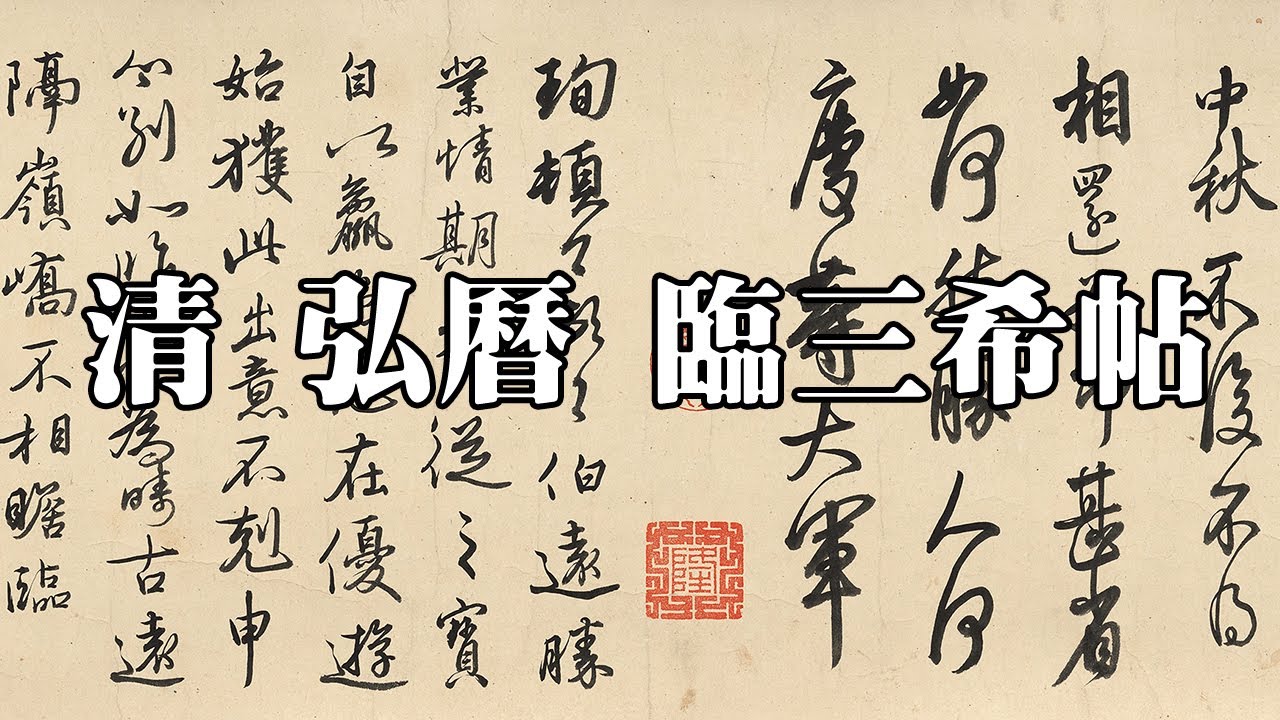 清 弘曆 臨三希帖
中秋不復不得
相還即甚省
如何然勝人何
慶等大軍
珣頓首頓首伯遠勝
業情期從之寶
自以羸在優遊
始獲此出意不剋申
分別如昨為疇古遠
隔嶺嶠不相瞻臨